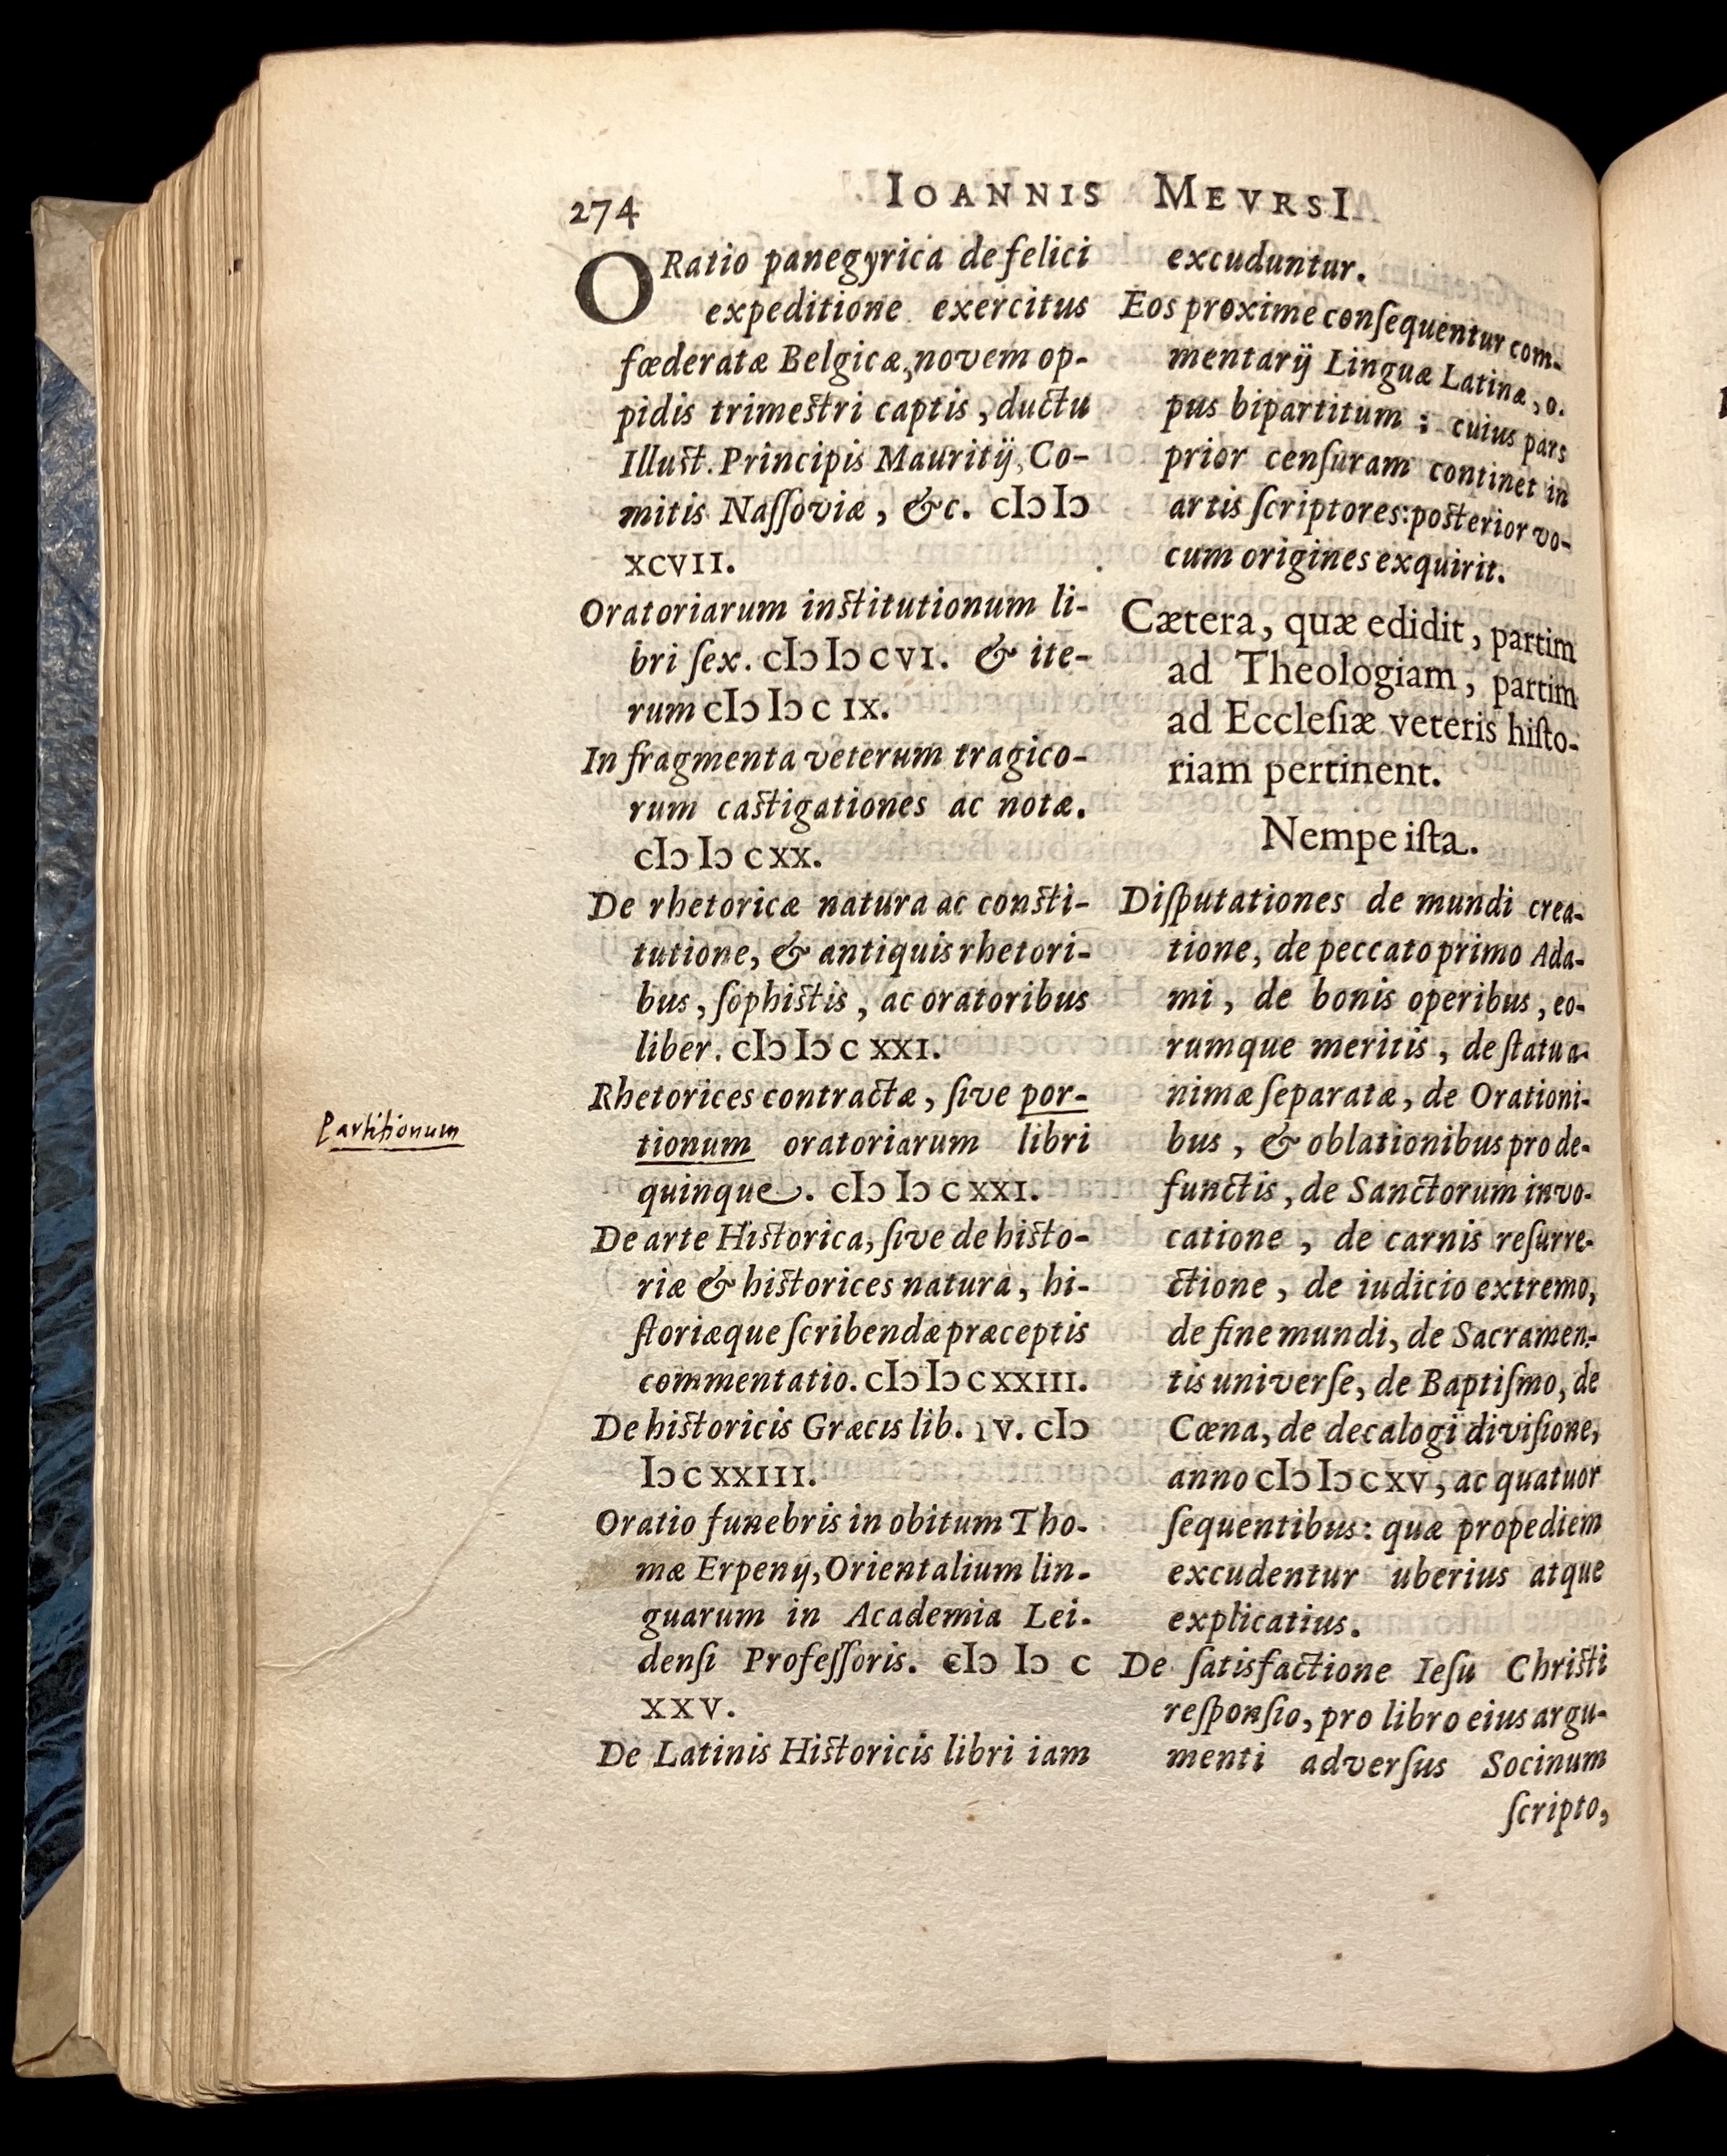 274
IOANNIS MEVRSI
ORatio panegyrica de felici
expeditione exercitus
fœderatæ Belgicæ, novem op-
pidis trimeſtri captis, ductu
Illuſt. Principis Mauritij, Co-
mitis Naſſoviæ, &c. cIↄ Iↄ
XCVII.
Oratoriarum inſtitutionum li-
bri ſex. cIↄ Iↄ c VI. & ite-
rum cIↄ Iↄ c IX.
In fragmenta veterum tragico-
rum caſtigationes ac notæ.
cIↄ Iↄ c XX.
De rhetoricæ natura ac conſti-
tutione, & antiquis rhetori-
bus, ſophiſtis, ac oratoribus
liber. cIↄ Iↄ c XXI.
Rhetorices contractæ, ſive por-
tionum oratoriarum libri
Partitionum
quinque. cIↄ Iↄ c XXI.
De arte Hiſtorica, ſive de hiſto-
riæ & hiſtorices naturà, hi-
ſtoriæque ſcribendæ præceptis
commentatio. cIↄ Iↄ c XXIII.
De hiſtoricis Græcis lib. IV. cIↄ
Iↄ c XXIII.
Oratio funebris in obitum Tho-
mæ Erpenij, Orientalium lin-
guarum in Academia Lei-
denſi Profeſſoris. cIↄ Iↄ c
XXV.
De Latinis Hiſtoricis libri iam
excuduntur.
Eos proxime conſequentur com-
mentarij Linguæ Latinæ, o-
pus bipartitum; cuius pars
prior cenſuram continet in
artis ſcriptores: poſterior vo-
cum origines exquirit.
Cætera, quæ edidit, partim
ad Theologiam, partim
ad Eccleſiæ veteris hiſto-
riam pertinent.
Nempe iſta.
Diſputationes de mundi crea-
tione, de peccato primo Ada-
mi, de bonis operibus, eo-
rumque meritis, de ſtatu a-
nimæ ſeparatæ, de Orationi-
bus, & oblationibus pro de-
functis, de Sanctorum invo-
catione, de carnis reſurre-
ctione, de iudicio extremo,
de fine mundi, de Sacramen-
tis univerſe, de Baptiſmo, de
Cœna, de decalogi diviſione,
anno cIↄ Iↄ c XV, ac quatuor
ſequentibus: quæ propediem
excudentur uberius atque
explicatius.
De ſatisfactione Ieſu Chriſti
reſponſio, pro libro eius argu-
menti adverſus Socinum
ſcripto,